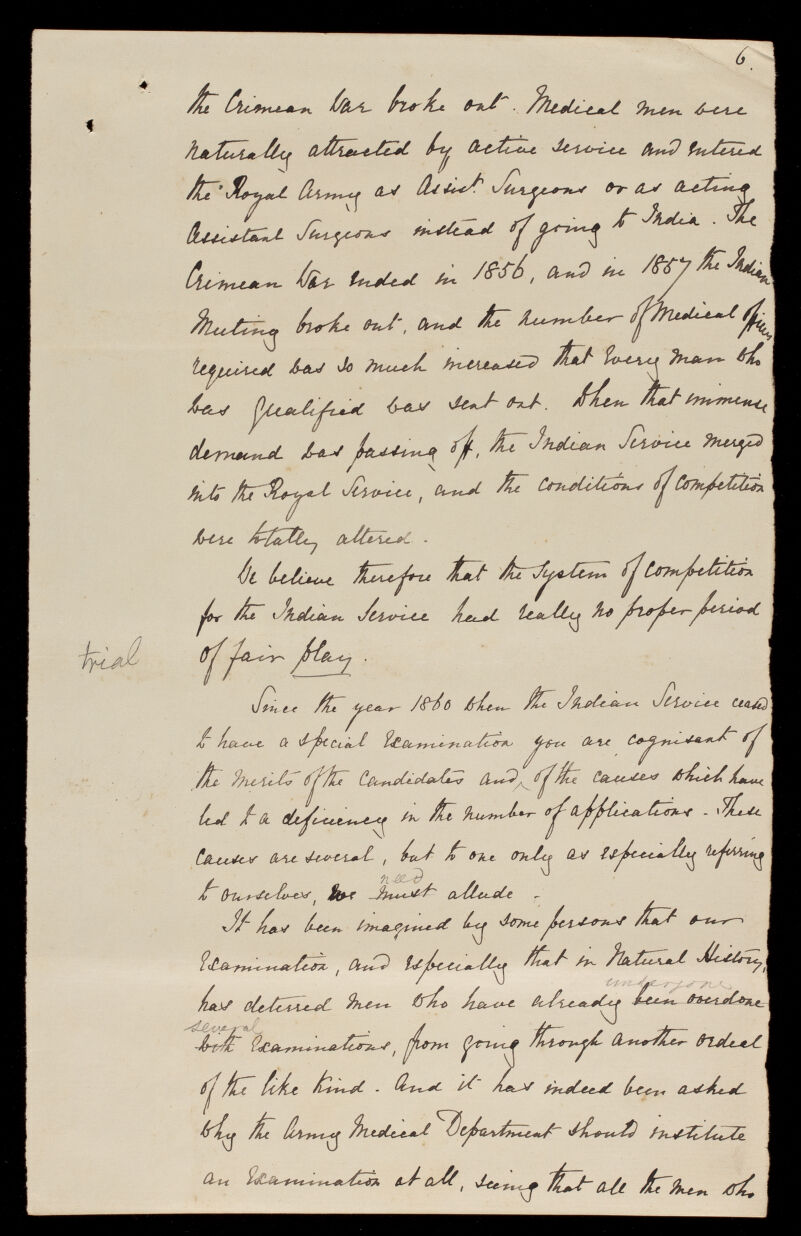 6.
the Crimean War broke out. Medical men were
naturally attracted by active service and entered
the Royal Army as Assist. Surgeons or as acting
Assistant Surgeons instead of going to India. The
Crimean War ended in 1856, and in 1857 the Indian
Mutiny broke out, and the number of Medical officers
required was so much increased that every man who
was qualified was sent out. When that immense
demand was passing off, the Indian Service merged
into the Royal Service, and the conditions of competition
were totally altered.
We believe therefore that the system of competition
for the Indian Service had really no proper period
trial
of fair play.
Since the year 1860 when the Indian Service ceased
to have a special Examination you are cognisant of
the merits of the candidates and, of the causes which have
led to a deficiency in the number of applications. These
causes are several, but to one only as especially referring
need
to ourselves, we must allude.
It has been imagined by some persons that our
Examination, and especially that in Natural History,
undergone
has deterred men who have already been overdone
several
with Examinations, from going through another ordeal
of the like kind. And it has indeed been asked
why the Army Medical Department should institute
an Examination at all, seeing that all the men who